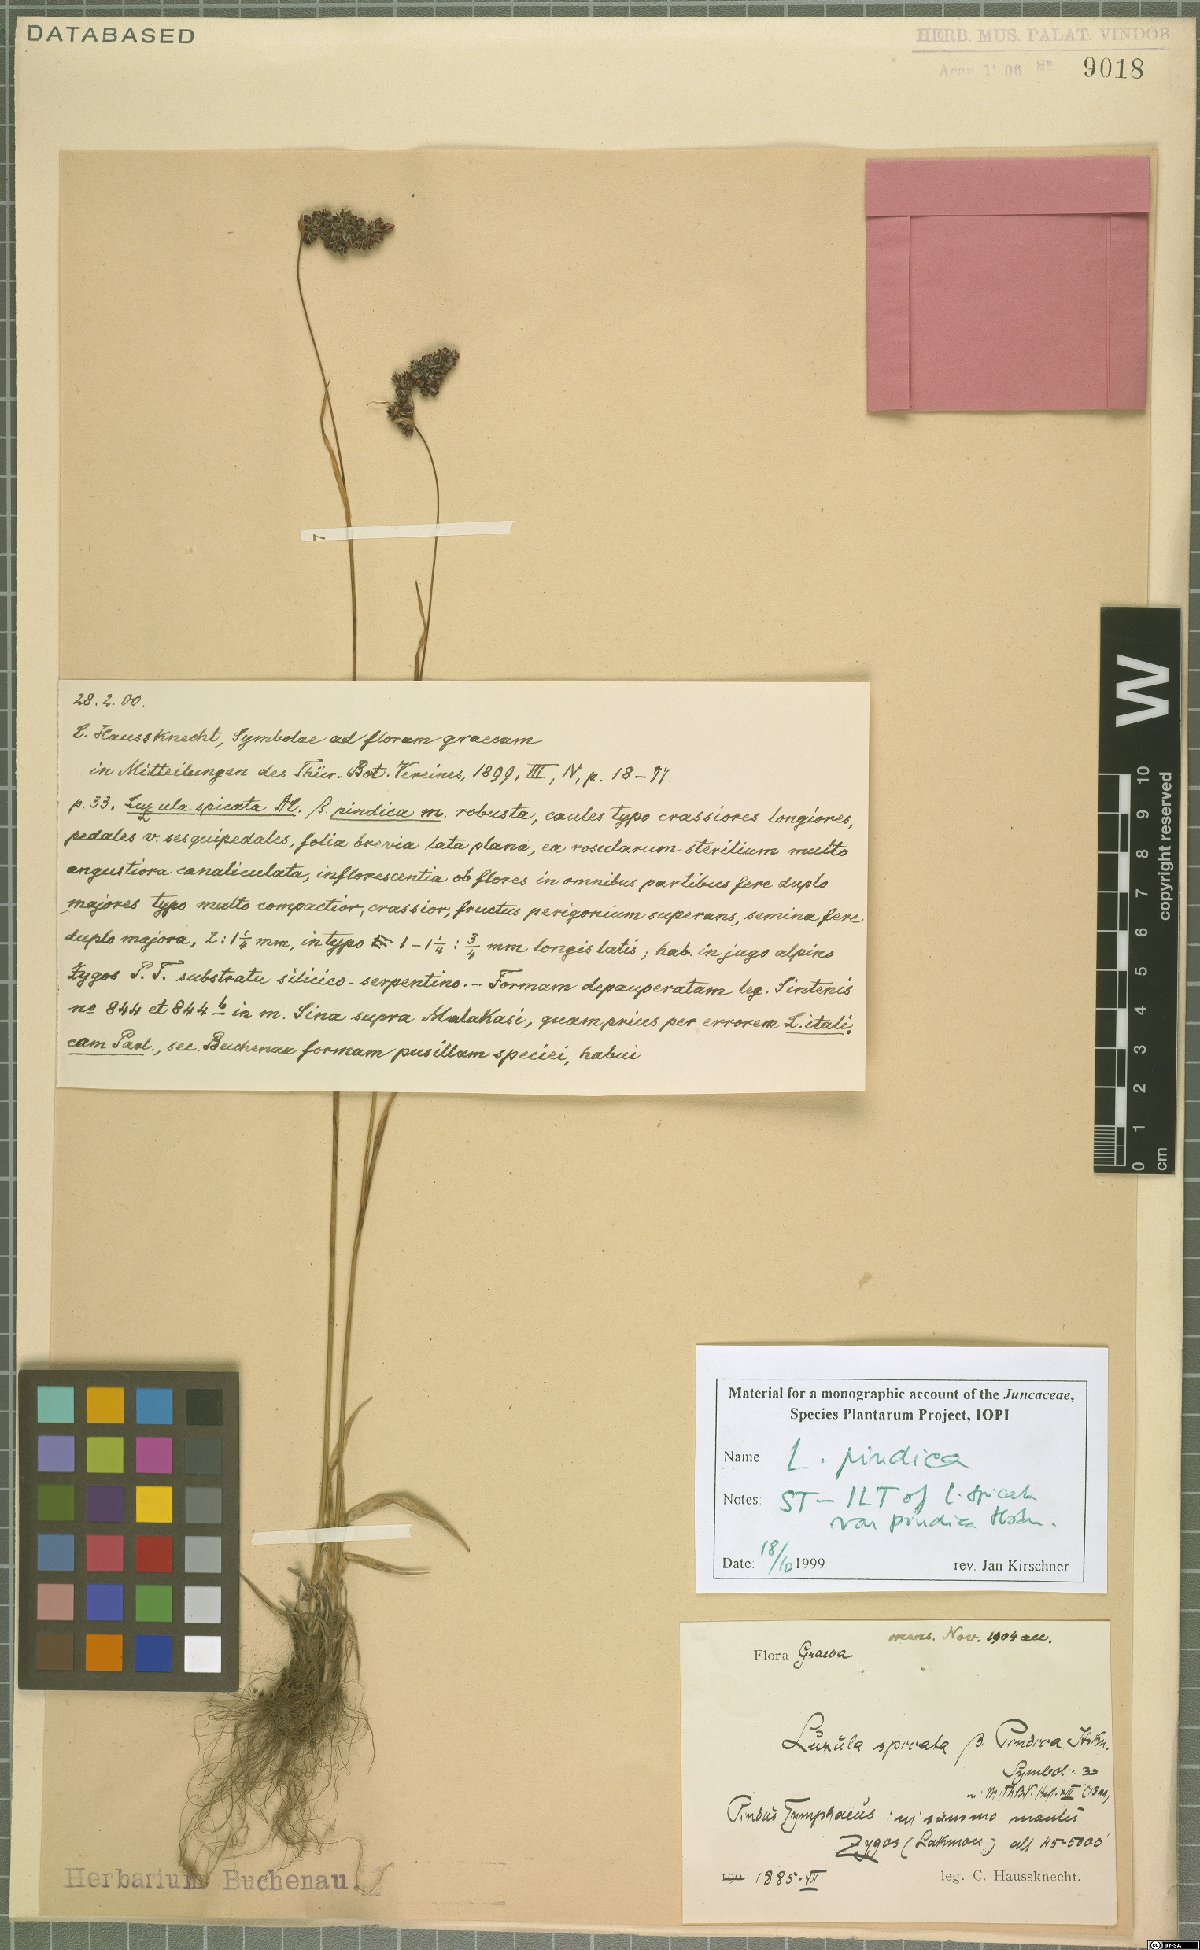 DATABASED
HERB. MUS. PALAT. VINDOB
Acqu. 1906 No. 9018
28.2.00.
C. Haussknecht, Symbolae ad floram graecam
in Mitteilungen des Thür. Bot. Vereins, 1899, III, N, p. 18-77
p. 33. Luzula spicata DC. β. pindica m. robusta, caules typo crassiores longiores,
pedales v. sesquipedales, folia brevia lata plana, ea rosularum sterilium multo
angustiora canaliculata, inflorescentia ob flores in omnibus partibus fere duplo
majores typo multo compactior, crassior, fructus perigonium superans, semina fere
duplo majora, 2:1¼ mm, in typo 1-1¼ : ¾ mm longis latis; hab. in jugo alpino
Zygos P. T. substratu silicico-serpentino. - Formam depauperatam leg. Sintenis
no 844 et 844 b in m. Sina supra Malakasi, quam prius per errorem L. itali-
cam Parl., sec. Buchenau formam pusillam speciei, habui
10
9
8
7
6
5
4
3
2
1
0
cm
W
copyright reserved
Material for a monographic account of the Juncaceae,
Species Plantarum Project, IOPI
Name L. pindica
Notes: ST - ILT of L. spicata
var pindica Hskn.
Date: 18/10 1999 rev. Jan Kirschner
mens. Nov. 1904 acc.
Flora Graeca
Luzula spicata β Pindica Hskn.
Symbol. 33
Pindus Tymphaeus in summo montis
Zygos (Lakmon) alt 45-5000'
1885. VII leg. C. Haussknecht.
Herbarium Buchenau.